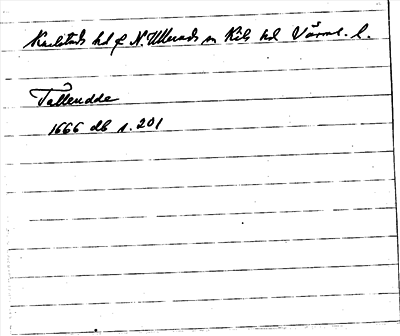 Karlstads hd f N. Ullerads sn Kils hd Värml. l.
Talleudde
1666 db s. 201